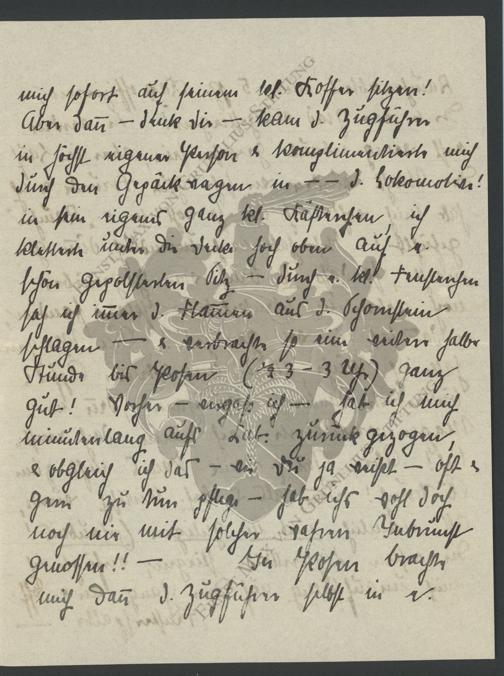 mich sofort auf seinem kl. Koffer sitzen!
Aber dan̅ – denk dir – kam d. Zugführer
in höchst eigener Person & komplimentierte mich
durch den Gepäckwagen in – – d. Lokomotive!
in sein eigenes ganz kl. Kästchen, ich
kletterte unter die Decke hoch oben auf e.
schön gepolsterten Sitz – durch e. kl. Fensterchen
sah ich im̅er d. Flam̅en aus d. Schornstein
schlagen – & verbrachte so eine weitere halbe
Stunde bis Posen (½3 – 3 Uhr) ganz
gut! Vorher – vergaß ich – hab ich mich
minutenlang aufs Lat. zurückgezogen,
& obgleich ich das – wie Du ja weißt – oft &
gern zu tun pflege – hab ichs wohl doch
noch nie mit solcher wahren Inbrunst
genossen!! – In Posen brachte
mich dan̅ d. Zugführer selbst in e.